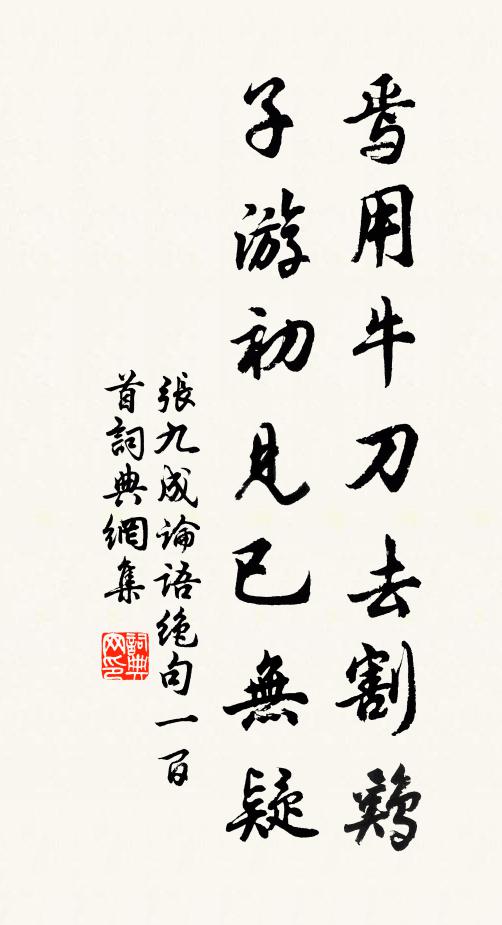 焉用牛刀去割鷄
子游初見已無疑
張九成論語絶句一百
首詞典網集
詞典
网印